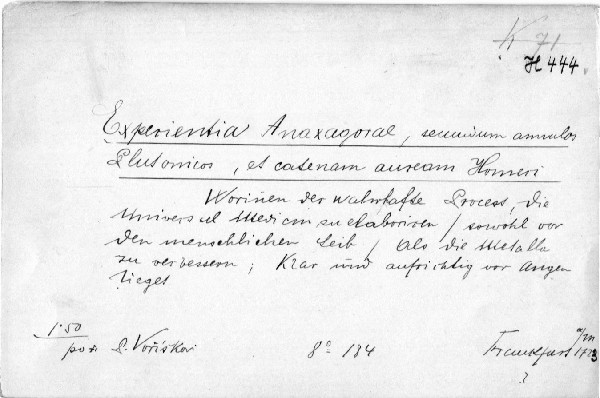 K 71
H 444
Experientia Anaxagorae, secundum annulos
Plutonicos, et catenam auream Homeri
Worinen der wahrhafte Process, die
Universal Medicin zu elaboriren / sowohl vor
den menschlichen Leib / Als die Metalle
zu verbessern; Klar und aufrichtig vor Augen
lieget
1·50
8° 134
Frankfurt a/M 1723
?